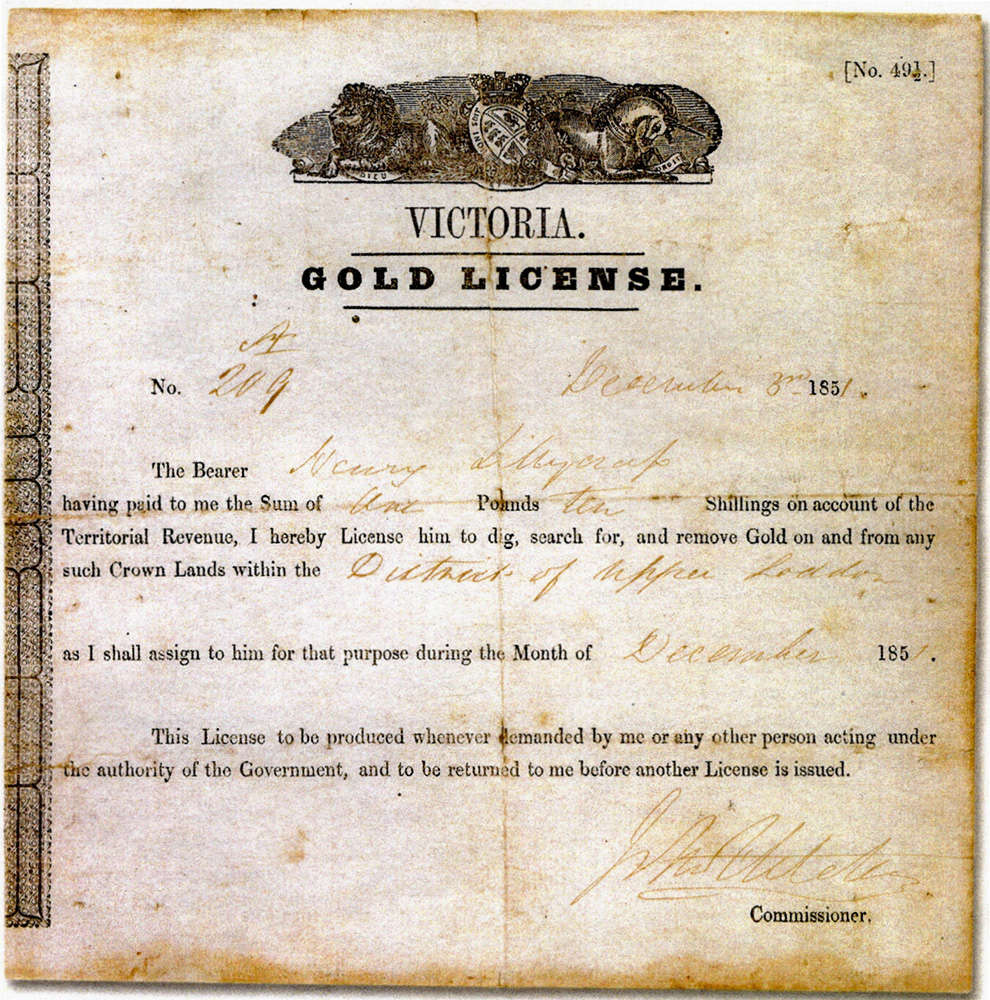 [No. 49½.]
ONI SOIT
DIEU DROIT
VICTORIA.
GOLD LICENSE.
No. 209 December 3rd 1851.
The Bearer Henry
having paid to me the Sum of One Pounds ten Shillings on account of the
Territorial Revenue, I hereby License him to dig, search for, and remove Gold on and from any
such Crown Lands within the District of Upper Loddon
as I shall assign to him for that purpose during the Month of December 1851.
This License to be produced whenever demanded by me or any other person acting under
the authority of the Government, and to be returned to me before another License is issued.
Commissioner.